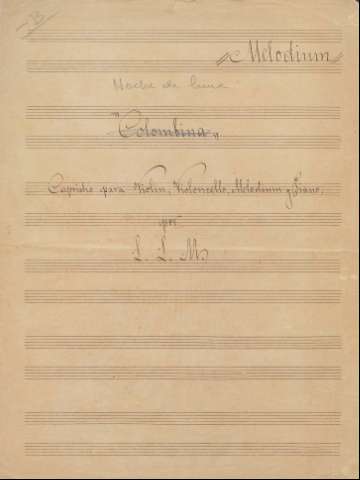 B
Melodium
Noche de luna
"Colombina"
Capricho para Violin, Violoncello, Melodium y Piano,
por
L. L. M.